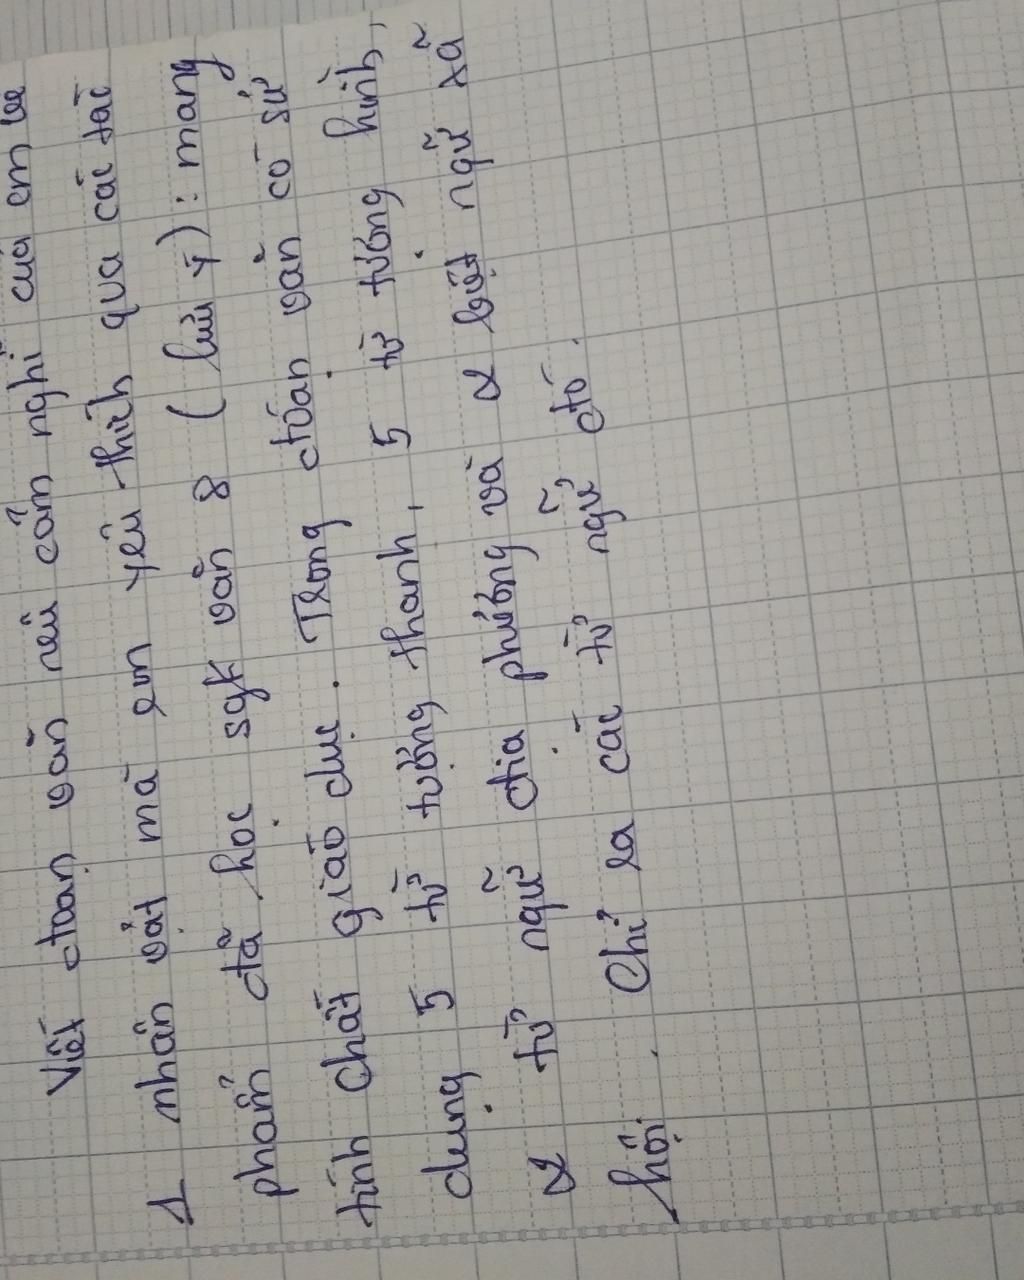 Viết đoạn văn nêu cảm nghĩ của em về
1 nhân vật mà em yêu thích qua các tác
phẩm đã học sgk văn 8 (lưu ý): mang
tính chất giáo dục. Trong đoạn văn có sử
dụng 5 từ tượng thanh, 5 từ tượng hình,
2 từ ngữ địa phương và 2 biệt ngữ xã
hội. Chỉ ra các từ ngữ đó.